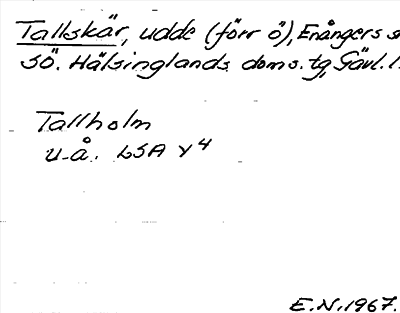 Tallskär, udde (förr ö), Enångers s
SÖ. Hälsinglands doms. tg, Gävl. l.
Tallholm
u.å. LSA Y4
E.N. 1967.